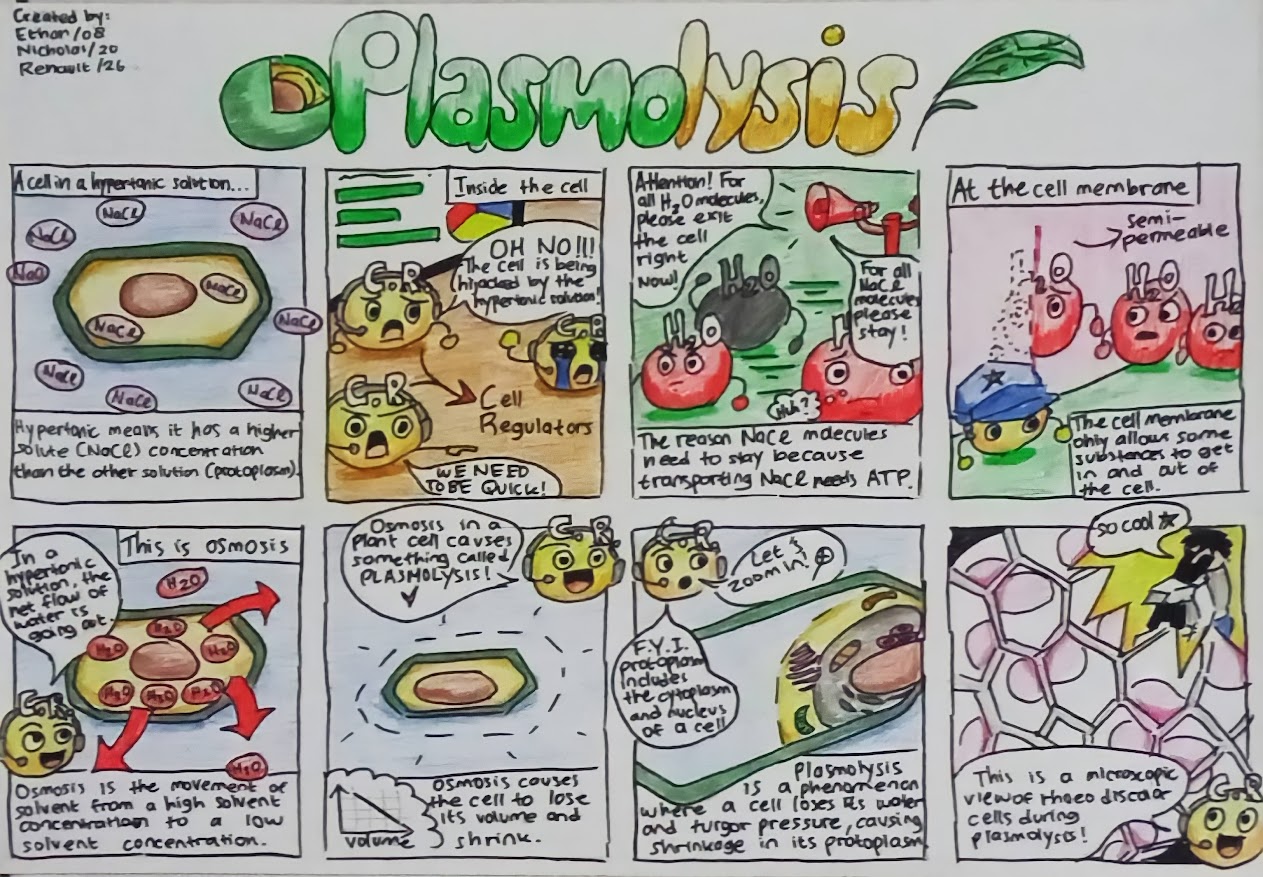 Created by:
Ethan/08
Nicholas/20
Renault/26
Plasmolysis
A cell in a hypertonic solution...
NaCl
NaCl
NaCl
NaCl
NaCl
NaCl
NaCl
NaCl
NaCl
NaCl
Hypertonic means it has a higher
solute (NaCl) concentration
than the other solution (protoplasm).
Inside the cell
OH NO!!!
The cell is being
hijacked by the
hypertonic solution!
C.R
C.R
C.R
Cell
Regulators
WE NEED
TO BE QUICK!
Attention! For
all H2O molecules,
please exit
the cell
right
now!
H2O
H2O
For all
NaCl
molecules
please
stay!
Huh?
The reason NaCl molecules
need to stay because
transporting NaCl needs ATP.
At the cell membrane
semi-
permeable
H2O
The cell membrane
only allows some
substances to get
in and out of
the cell.
This is osmosis
In a
hypertonic
solution, the
net flow of
water is
going out.
H2O
H2O
H2O
H2O
H2O
H2O
H2O
H2O
C.R
Osmosis is the movement of
solvent from a high solvent
concentration to a low
solvent concentration.
Osmosis in a
Plant cell causes
something called
PLASMOLYSIS!
C.R
volume
Osmosis causes
the cell to lose
its volume and
shrink.
C.R
Let's
zoom in!
F.Y.I.
protoplasm
includes
the cytoplasm
and nucleus
of a cell
Plasmolysis
is a phenomenon
where a cell loses its water
and turgor pressure, causing
shrinkage in its protoplasm
so cool
This is a microscopic
view of rhoeo discolor
cells during
plasmolysis!
C.R